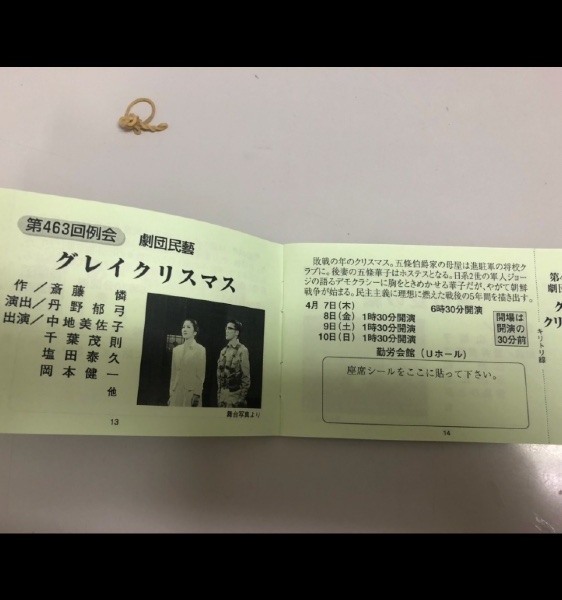 第463回例会
劇団民藝
グレイクリスマス
作／斎藤 憐
演出／丹野郁弓
出演／中地美佐子
千葉茂則
塩田泰久
岡本健一
他
舞台写真より
13
敗戦の年のクリスマス。五條伯爵家の母屋は進駐軍の将校ク
ラブに。後妻の五條華子はホステスとなる。日系2世の軍人ジョー
ジの語るデモクラシーに胸をときめかせる華子だが、やがて朝鮮
戦争が始まる。民主主義に理想に燃えた戦後の5年間を描き出す。
4月 7日(木) 6時30分開演
8日(金) 1時30分開演
9日(土) 1時30分開演
10日(日) 1時30分開演
開場は
開演の
30分前
勤労会館（Uホール）
座席シールをここに貼って下さい。
14
キリトリ線
第4
劇団
クリ